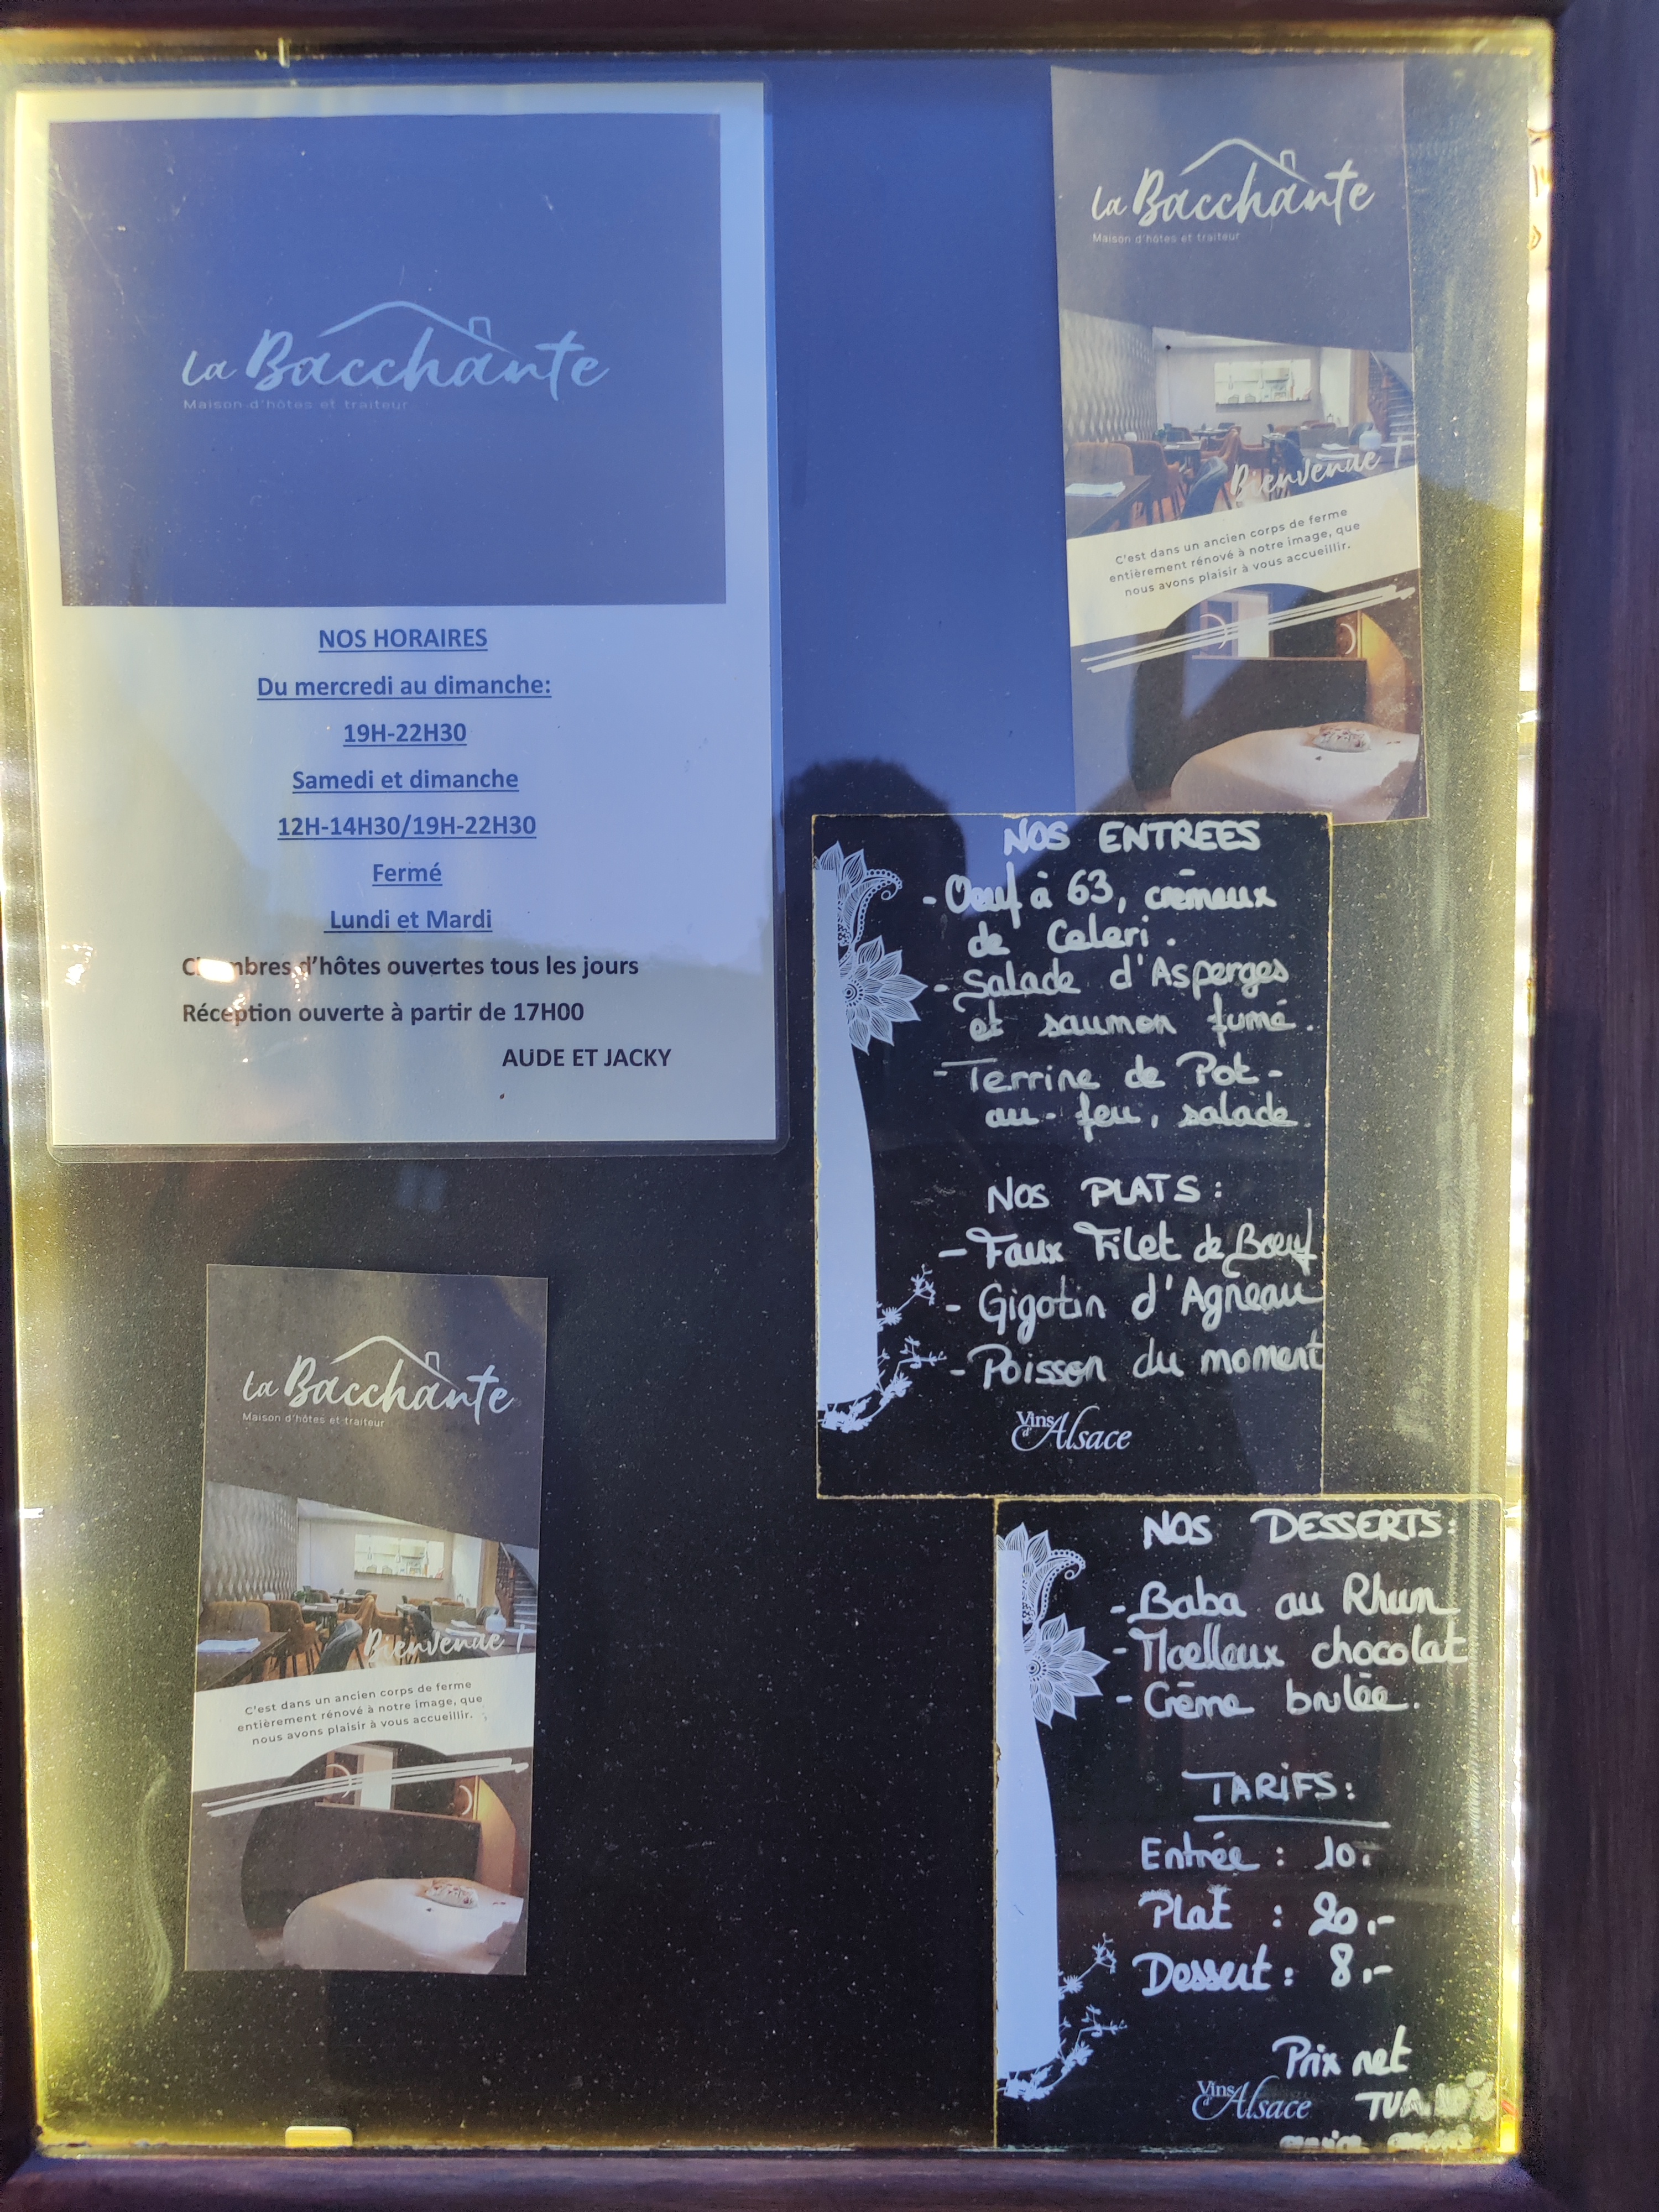 La Bacchante
Maison d'hôtes et traiteur
NOS HORAIRES
Du mercredi au dimanche:
19H-22H30
Samedi et dimanche
12H-14H30/19H-22H30
Fermé
Lundi et Mardi
Chambres d'hôtes ouvertes tous les jours
Réception ouverte à partir de 17H00
AUDE ET JACKY
La Bacchante
Maison d'hôtes et traiteur
Bienvenue !
C'est dans un ancien corps de ferme
entièrement rénové à notre image, que
nous avons plaisir à vous accueillir.
NOS ENTREES
- Oeuf à 63, crémeux
de Celeri.
- Salade d'Asperges
et saumon fumé.
- Terrine de Pot-
au-feu, salade.
NOS PLATS:
- Faux Filet de Bœuf
- Gigotin d'Agneau
- Poisson du moment
Vins d'Alsace
La Bacchante
Maison d'hôtes et traiteur
Bienvenue !
C'est dans un ancien corps de ferme
entièrement rénové à notre image, que
nous avons plaisir à vous accueillir.
NOS DESSERTS:
- Baba au Rhum
- Moelleux chocolat
- Crème brulée.
TARIFS:
Entrée : 10.-
Plat : 20.-
Dessert : 8.-
Prix net
Vins d'Alsace
TVA 10%